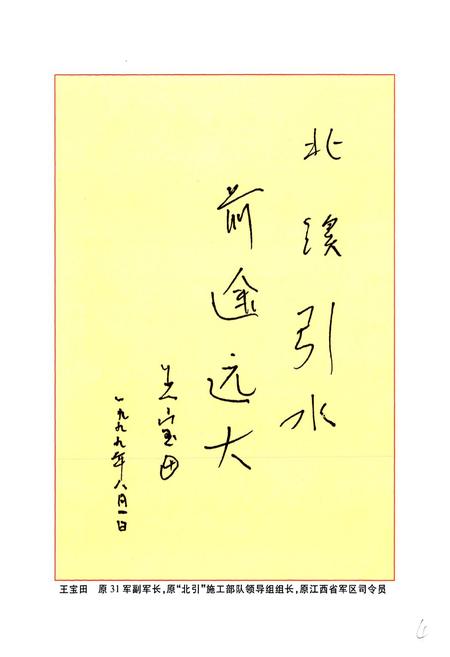 北溪引水
前途远大
王宝田
一九九九年八月一日
王宝田　原31军副军长,原“北引”施工部队领导组组长,原江西省军区司令员